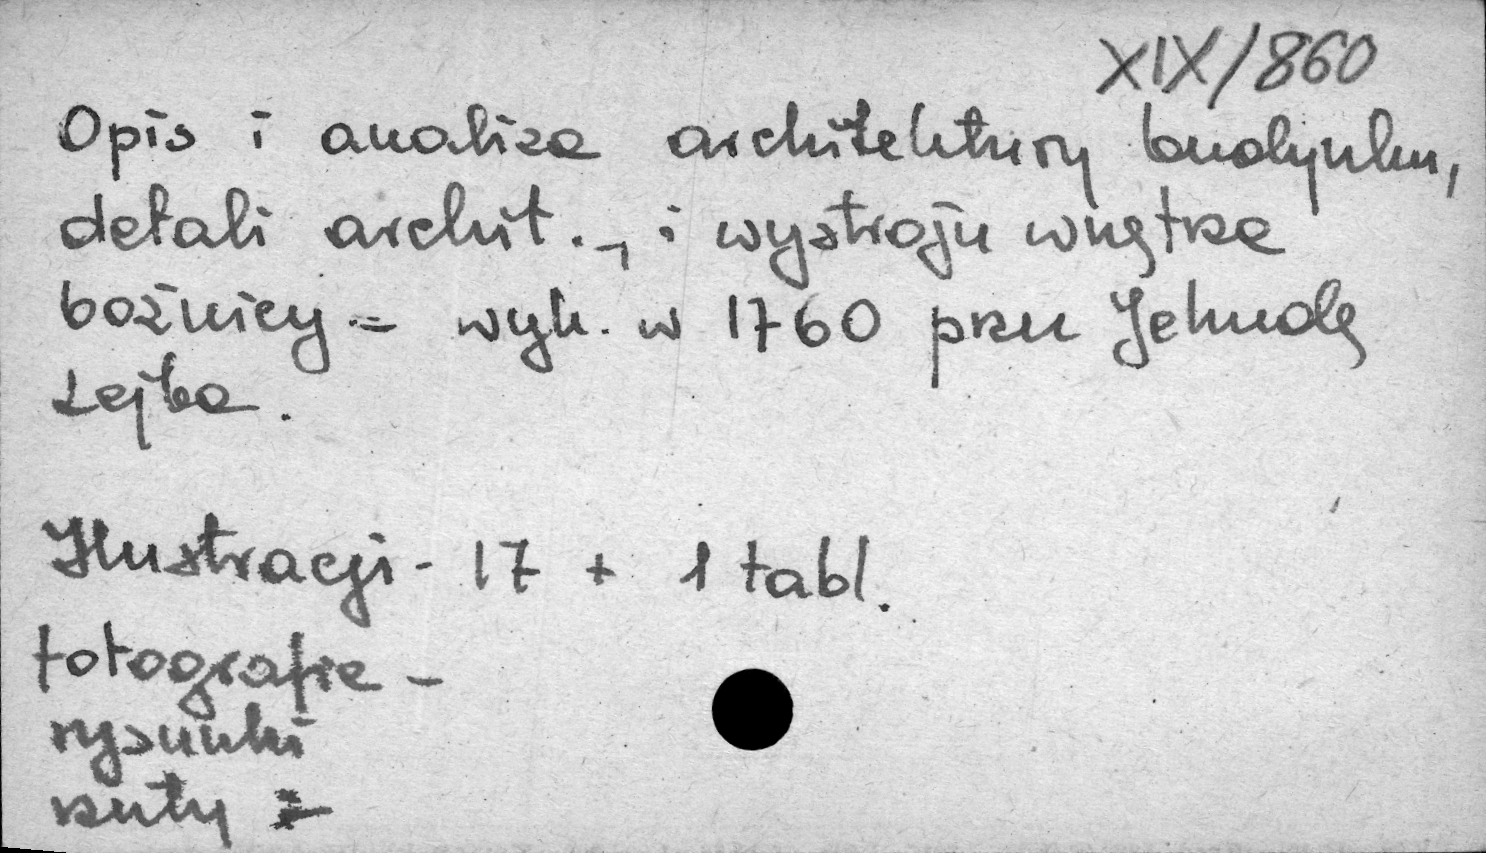 XIX/860
Opis i analiza architektury budynku,
detali archit., i wystroju wnętrza
bożnicy - wyk. w 1760 przez Jehudę
Lejba.
Ilustracji - 17 + 1 tabl.
fotografie -
rysunki
rzuty